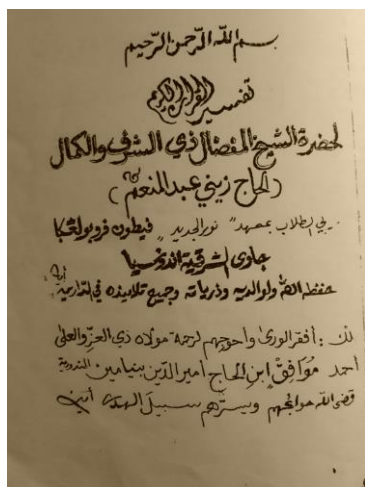 بسم الله الرحمن الرحيم
تفسير القرآن الكريم
لحضرة الشيخ المفضال ذي الشرف والكمال
(الحاج زيني عبد المنعم)
الطلاب بمعهد "نور الجديد" فيطون فروبولڠڬا
جاوى الشرقية اندونسيا
حفظه الله ولوالديه وذرياته وجميع تلاميذه في الدارين
أفقر الورى وأحوجهم لرحمة مولاه ذي العز والعلى
أحمد موافق ابن الحاج أمير الدين بنيامين
قضى الله حوائجهم ويسرهم سبيل الهدى آمين